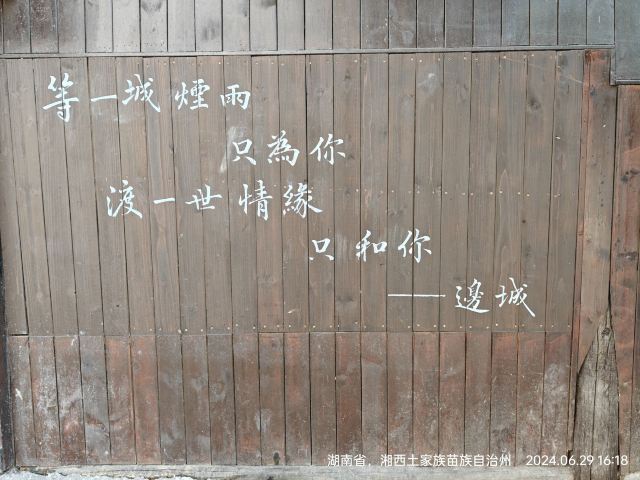 等一城煙雨
只為你
渡一世情緣
只和你
——邊城
湖南省，湘西土家族苗族自治州 2024.06.29 16:18